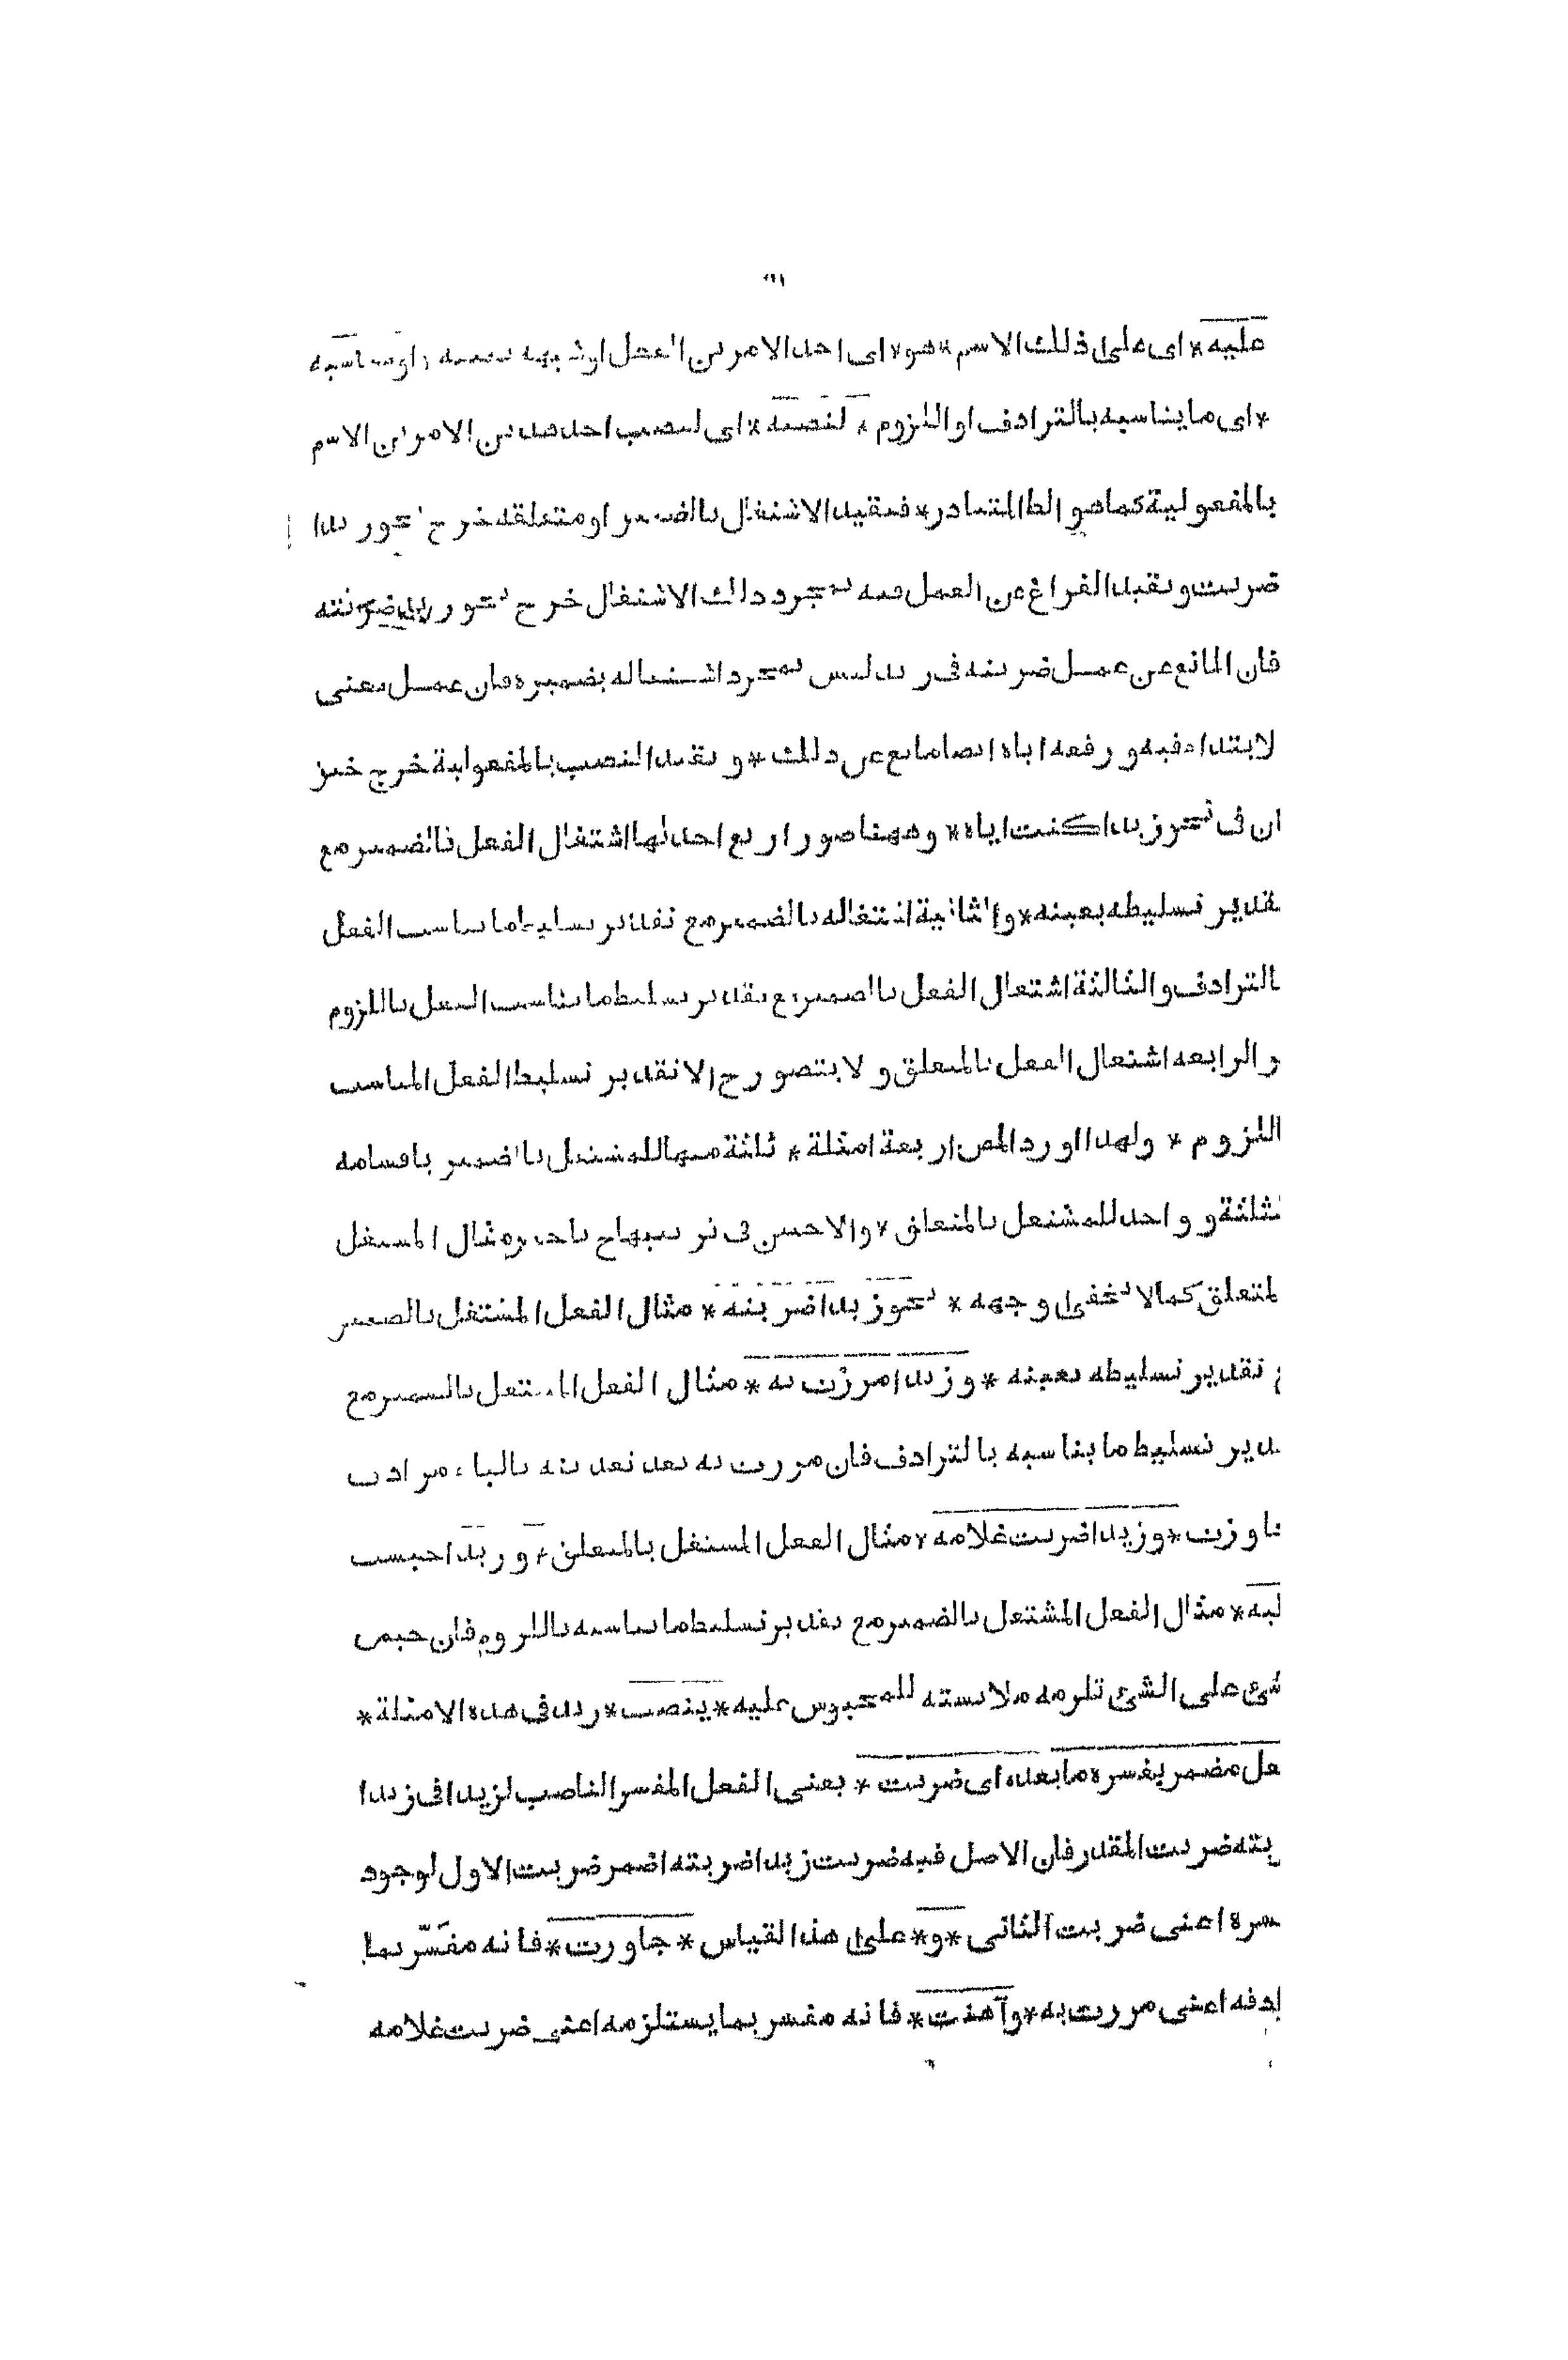 عليه * اى على ذلك الاسم * هو * اى احد الامرين الفعل او شبهه بعينه * او مناسبه
* اى ما يناسبه بالترادف او اللزوم * لنصبه * اى لنصب احد هذين الامرين الاسم
بالمفعولية كما هو الظ المتبادر * فبقيد الاشتغال بالضمير او متعلقه خرج نحو زيدا
ضربت وبقيد الفراغ عن العمل فيه بمجرد ذلك الاشتغال خرج نحو زيد ضربته
فان المانع عن عمل ضربته فى زيد ليس بمجرد اشتغاله بضميره فان عمل معنى
لابتداء فيه ورفعه اياه ايضا مانع عن ذلك * وبقيد النصب بالمفعولية خرج خبر
ان فى نحو زيدا كنت اياه * وههنا صور اربع احدٰها اشتغال الفعل بالضمير مع
قدير تسليطه بعينه * والثانية اشتغاله بالضمير مع تقدير تسليط ما يناسب الفعل
الترادف والثالثة اشتغال الفعل بالضمير مع تقدير تسليط ما يناسب الفعل باللزوم
والرابعة اشتغال الفعل بالمتعلق ولا يتصور ح الا تقدير تسليط الفعل المناسب
اللزوم * ولهذا اورد المص اربعة امثلة * ثلثة منها للمشتغل بالضمير باقسامه
لثلثة وواحد للمشتغل بالمتعلق * والاحسن فى ترتيبها ح تاخير مثال المشتغل
لمتعلق كما لا يخفى وجهه * نحو زيدا ضربته * مثال الفعل المشتغل بالضمير
ع تقدير تسليطه بعينه * وزيدا مررت به * مثال الفعل المشتغل بالضمير مع
دير تسليط ما يناسبه بالترادف فان مررت به بعد تعديته بالباء مرادف
اوزت * وزيدا ضربت غلامه * مثال الفعل المشتغل بالمتعلق * وزيدا حبست
ليه * مثال الفعل المشتغل بالضمير مع تقدير تسليط ما يناسبه باللزوم فان حبس
شئ على الشئ تلزمه ملابسته للمحبوس عليه * ينصب * زيد فى هذه الامثلة *
عل مضمر يفسره ما بعده اى ضربت * يعنى الفعل المفسر الناصب لزيد فى زيدا
بته ضربت المقدر فان الاصل فيه ضربت زيدا ضربته اضمر ضربت الاول لوجود
سره اعنى ضربت الثانى * و * على هذا القياس * جاوزت * فانه مفسّر بما
ادفه اعنى مررت به * وآهنت * فانه مفسر بما يستلزمه اعنى ضربت غلامه